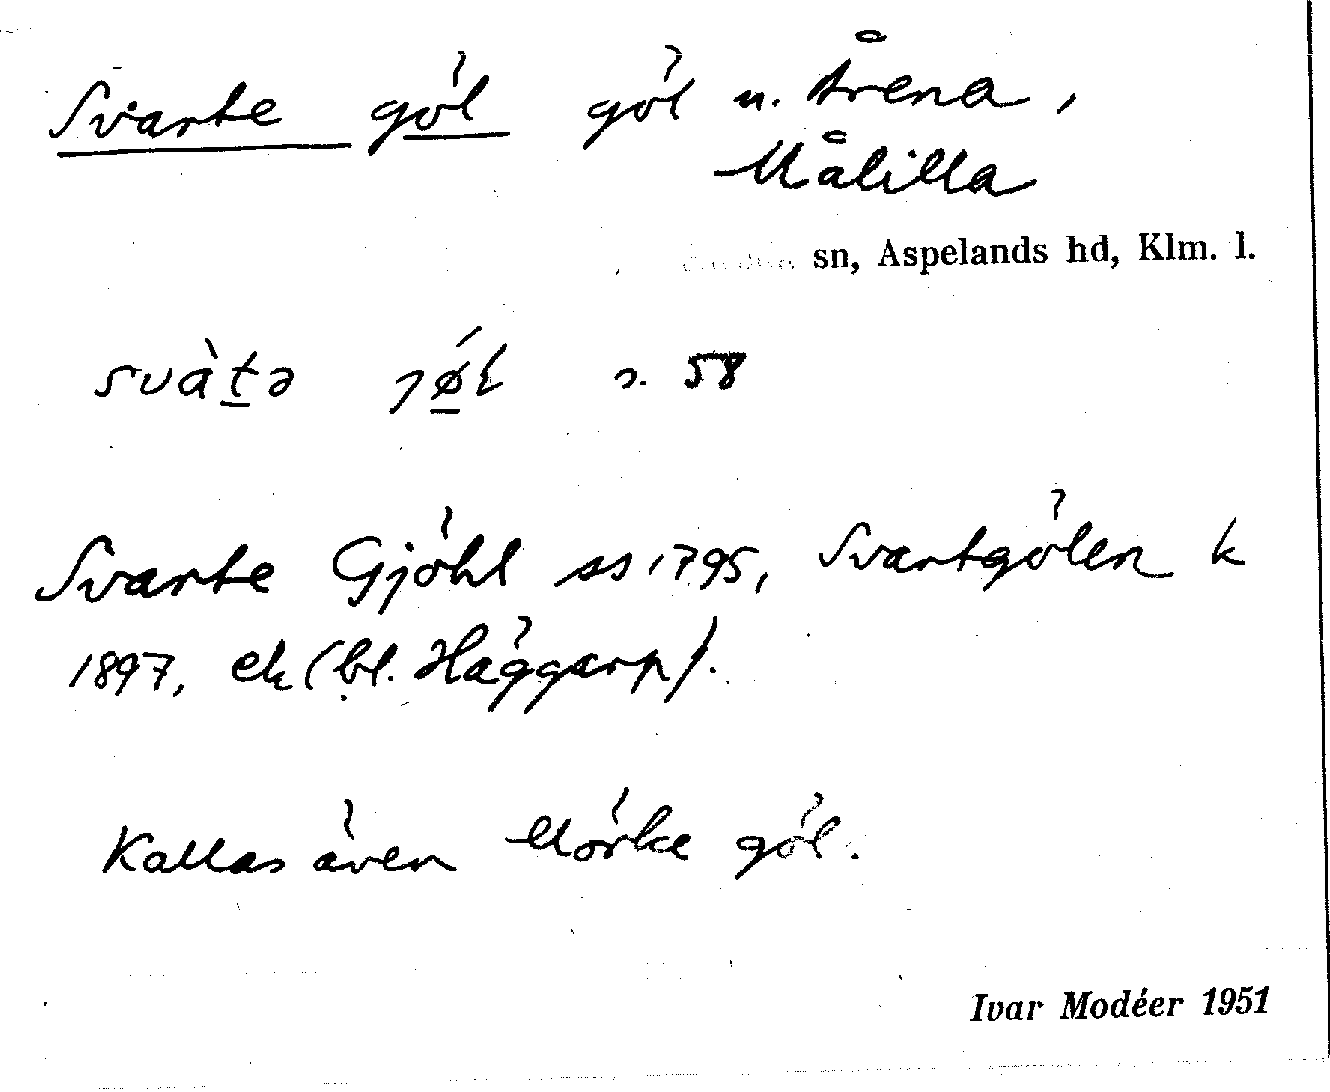 Svarte göl göl n. Årena,
Målilla
sn, Aspelands hd, Klm. l.
svàt̲ə s. 58
Svarte Gjöhl ss 1795, Svartgölen k
1897, ek (bl. Häggarp).
Kallas även Mörke göl.
Ivar Modéer 1951